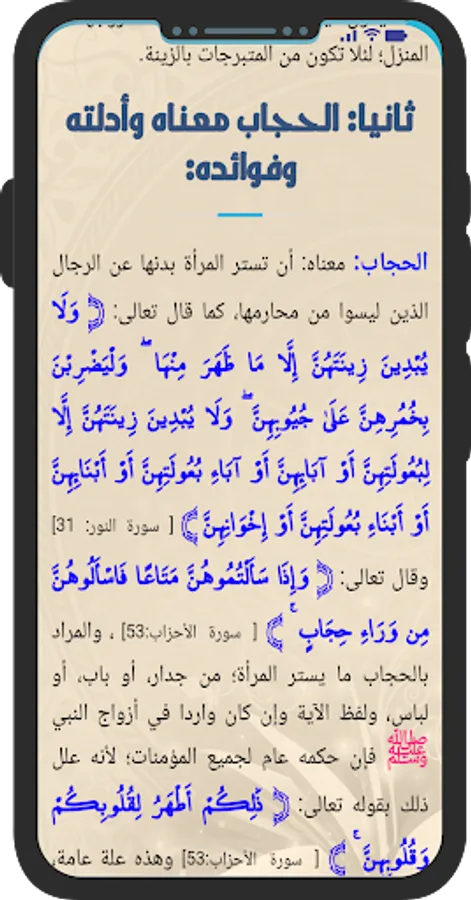 المنزل؛ لئلا تكون من المتبرجات بالزينة.
ثانيا: الحجاب معناه وأدلته
وفوائده:
الحجاب: معناه: أن تستر المرأة بدنها عن الرجال
الذين ليسوا من محارمها، كما قال تعالى: ﴿ وَلَا
يُبْدِينَ زِينَتَهُنَّ إِلَّا مَا ظَهَرَ مِنْهَا ۖ وَلْيَضْرِبْنَ
بِخُمُرِهِنَّ عَلَىٰ جُيُوبِهِنَّ ۖ وَلَا يُبْدِينَ زِينَتَهُنَّ إِلَّا
لِبُعُولَتِهِنَّ أَوْ آبَائِهِنَّ أَوْ آبَاءِ بُعُولَتِهِنَّ أَوْ أَبْنَائِهِنَّ
أَوْ أَبْنَاءِ بُعُولَتِهِنَّ أَوْ إِخْوَانِهِنَّ ﴾ [ سورة النور: 31]
وقال تعالى: ﴿ وَإِذَا سَأَلْتُمُوهُنَّ مَتَاعًا فَاسْأَلُوهُنَّ
مِن وَرَاءِ حِجَابٍ ۚ ﴾ [ سورة الأحزاب:53] ، والمراد
بالحجاب ما يستر المرأة؛ من جدار، أو باب، أو
لباس، ولفظ الآية وإن كان واردا في أزواج النبي
ﷺ فإن حكمه عام لجميع المؤمنات؛ لأنه علل
ذلك بقوله تعالى: ﴿ ذَٰلِكُمْ أَطْهَرُ لِقُلُوبِكُمْ
وَقُلُوبِهِنَّ ۚ ﴾ [ سورة الأحزاب:53] وهذه علة عامة،